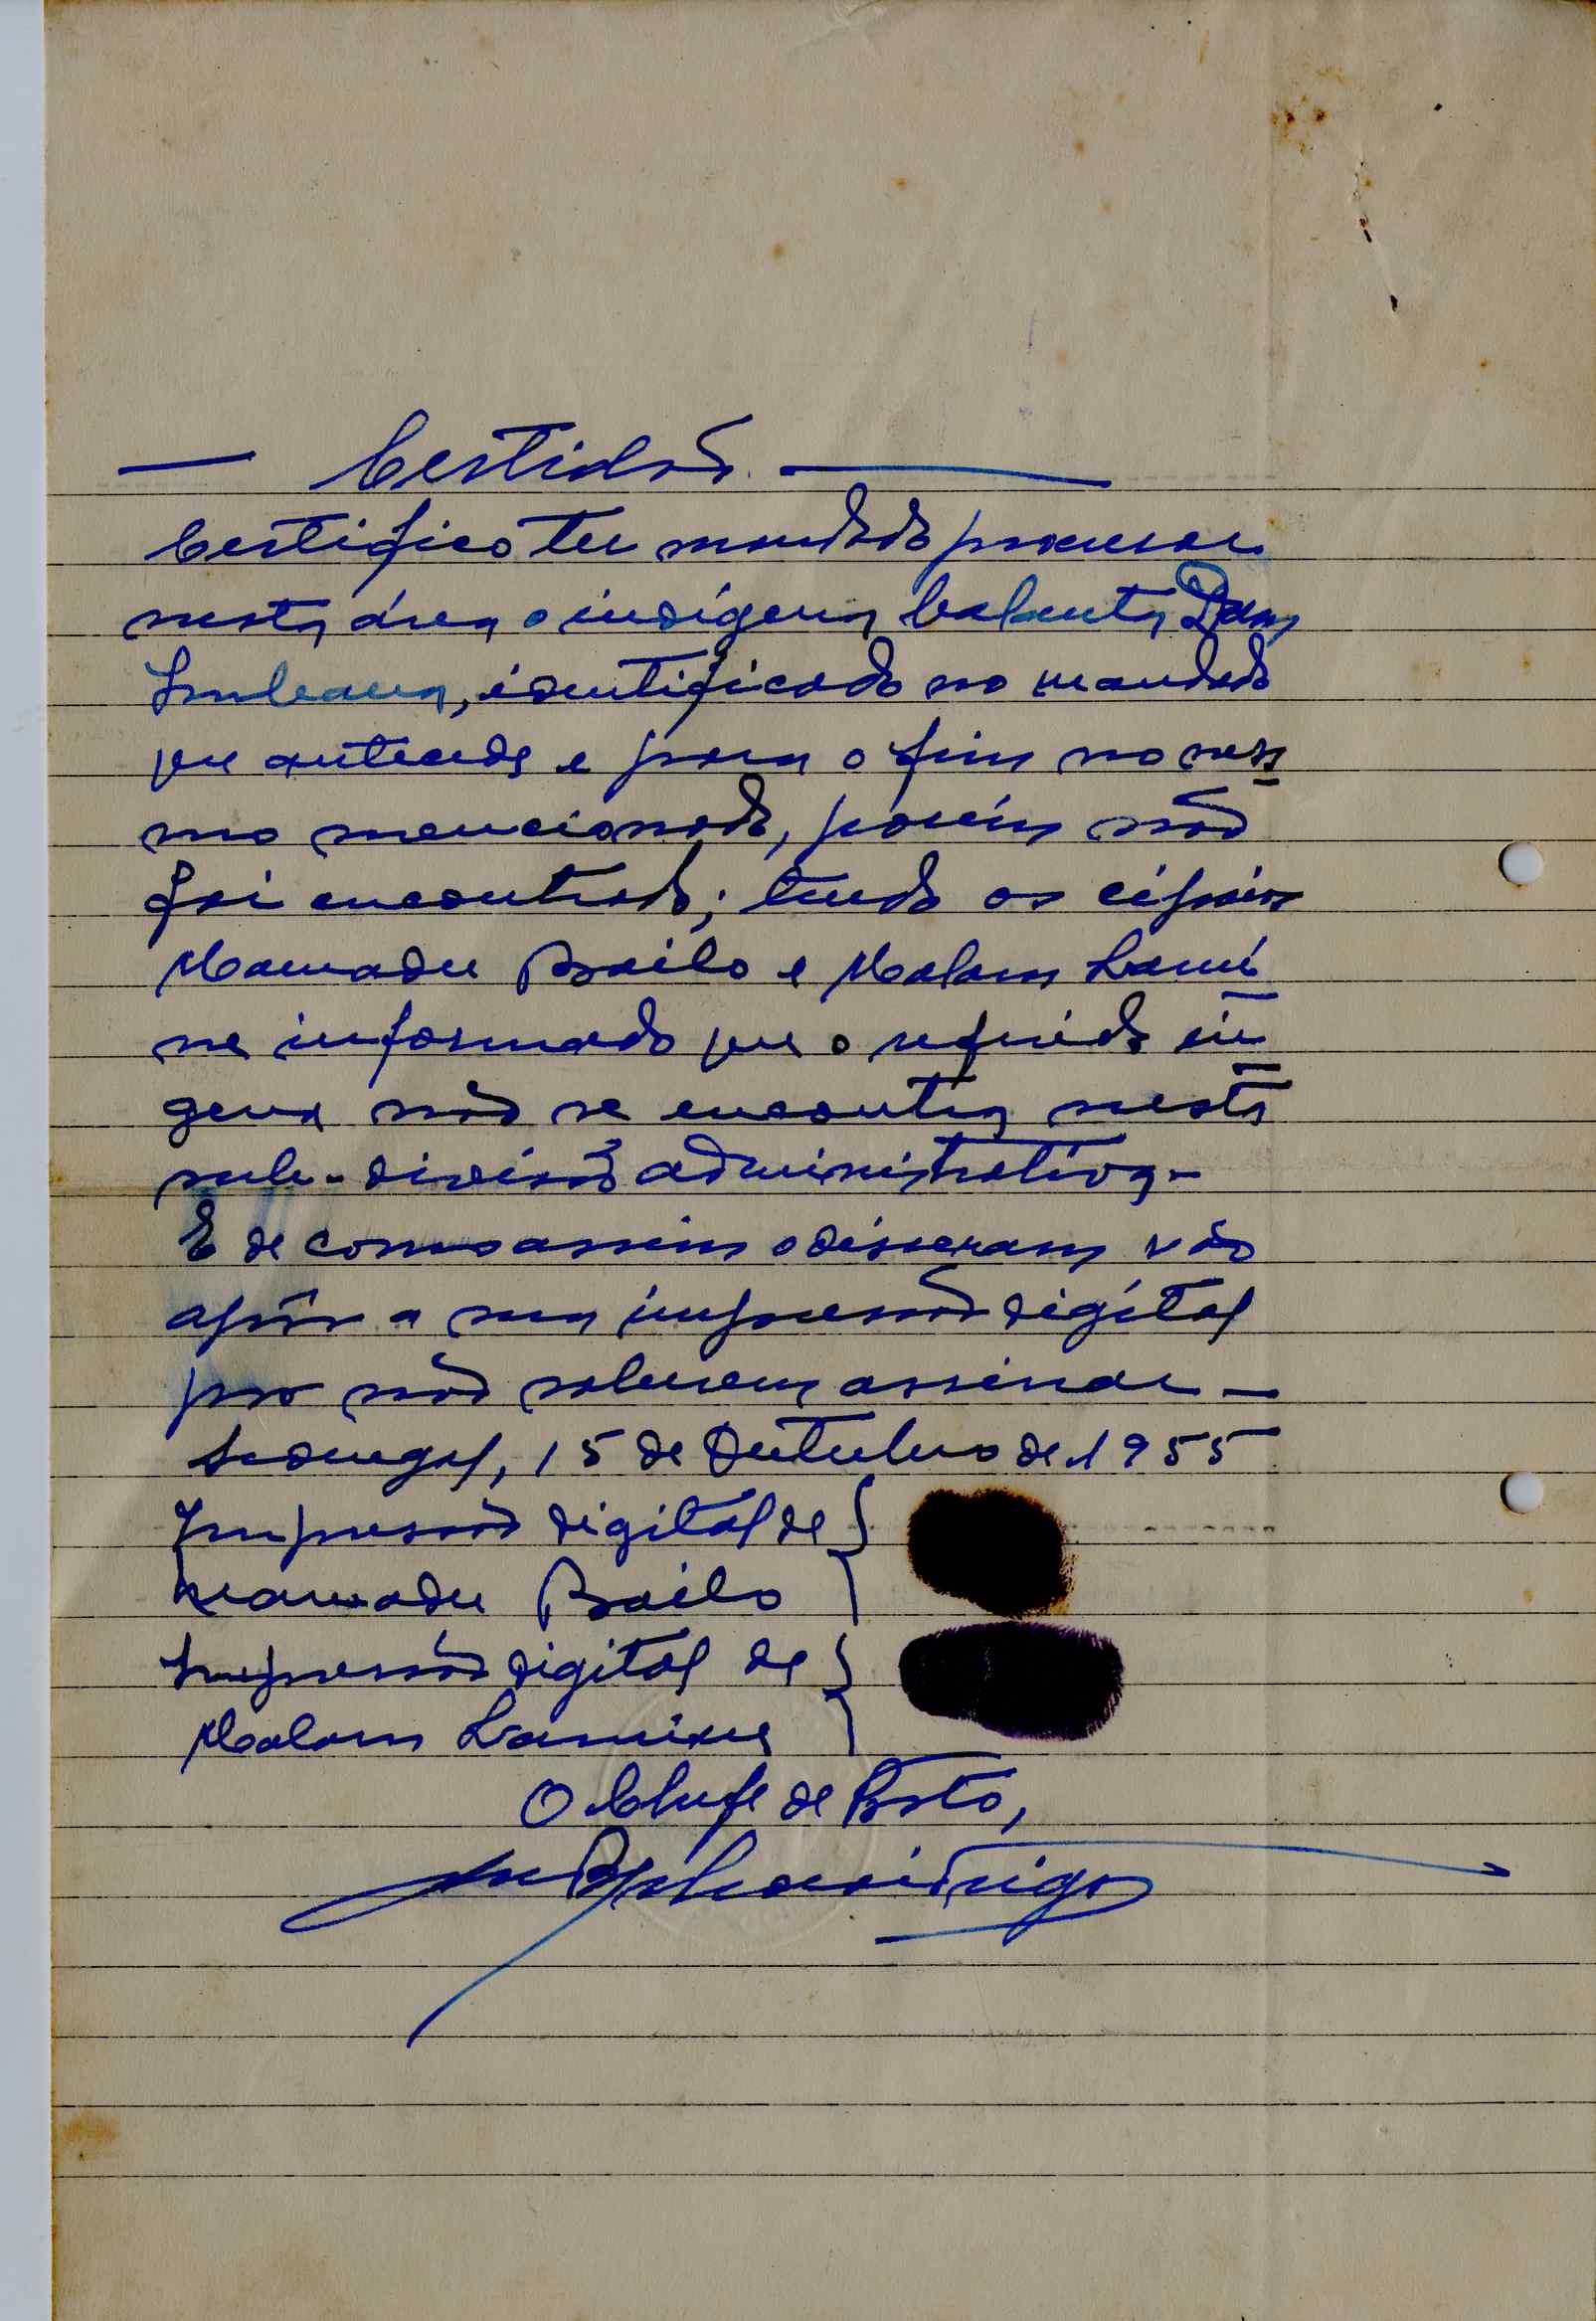 — Certidão —
Certifico ter mandado procurar
nesta área o indígena balanta Dam
Imbeana, identificado no mandado
que antecede e para o fim no mes-
mo mencionado, porém não
foi encontrado; tendo os cipaios
Mamadu Bailo e Malam Lami-
ne informado que o referido in-
gena não se encontra nesta
sub-divisão administrativa.-
E de como assim o disseram vão
apôr a sua impressão digital
por não saberem assinar —
Sedengal, 15 de Outubro de 1955
Impressão digital de }
Mamadu Bailo
Impressão digital de }
Malam Lamine
O Chefe de Posto,